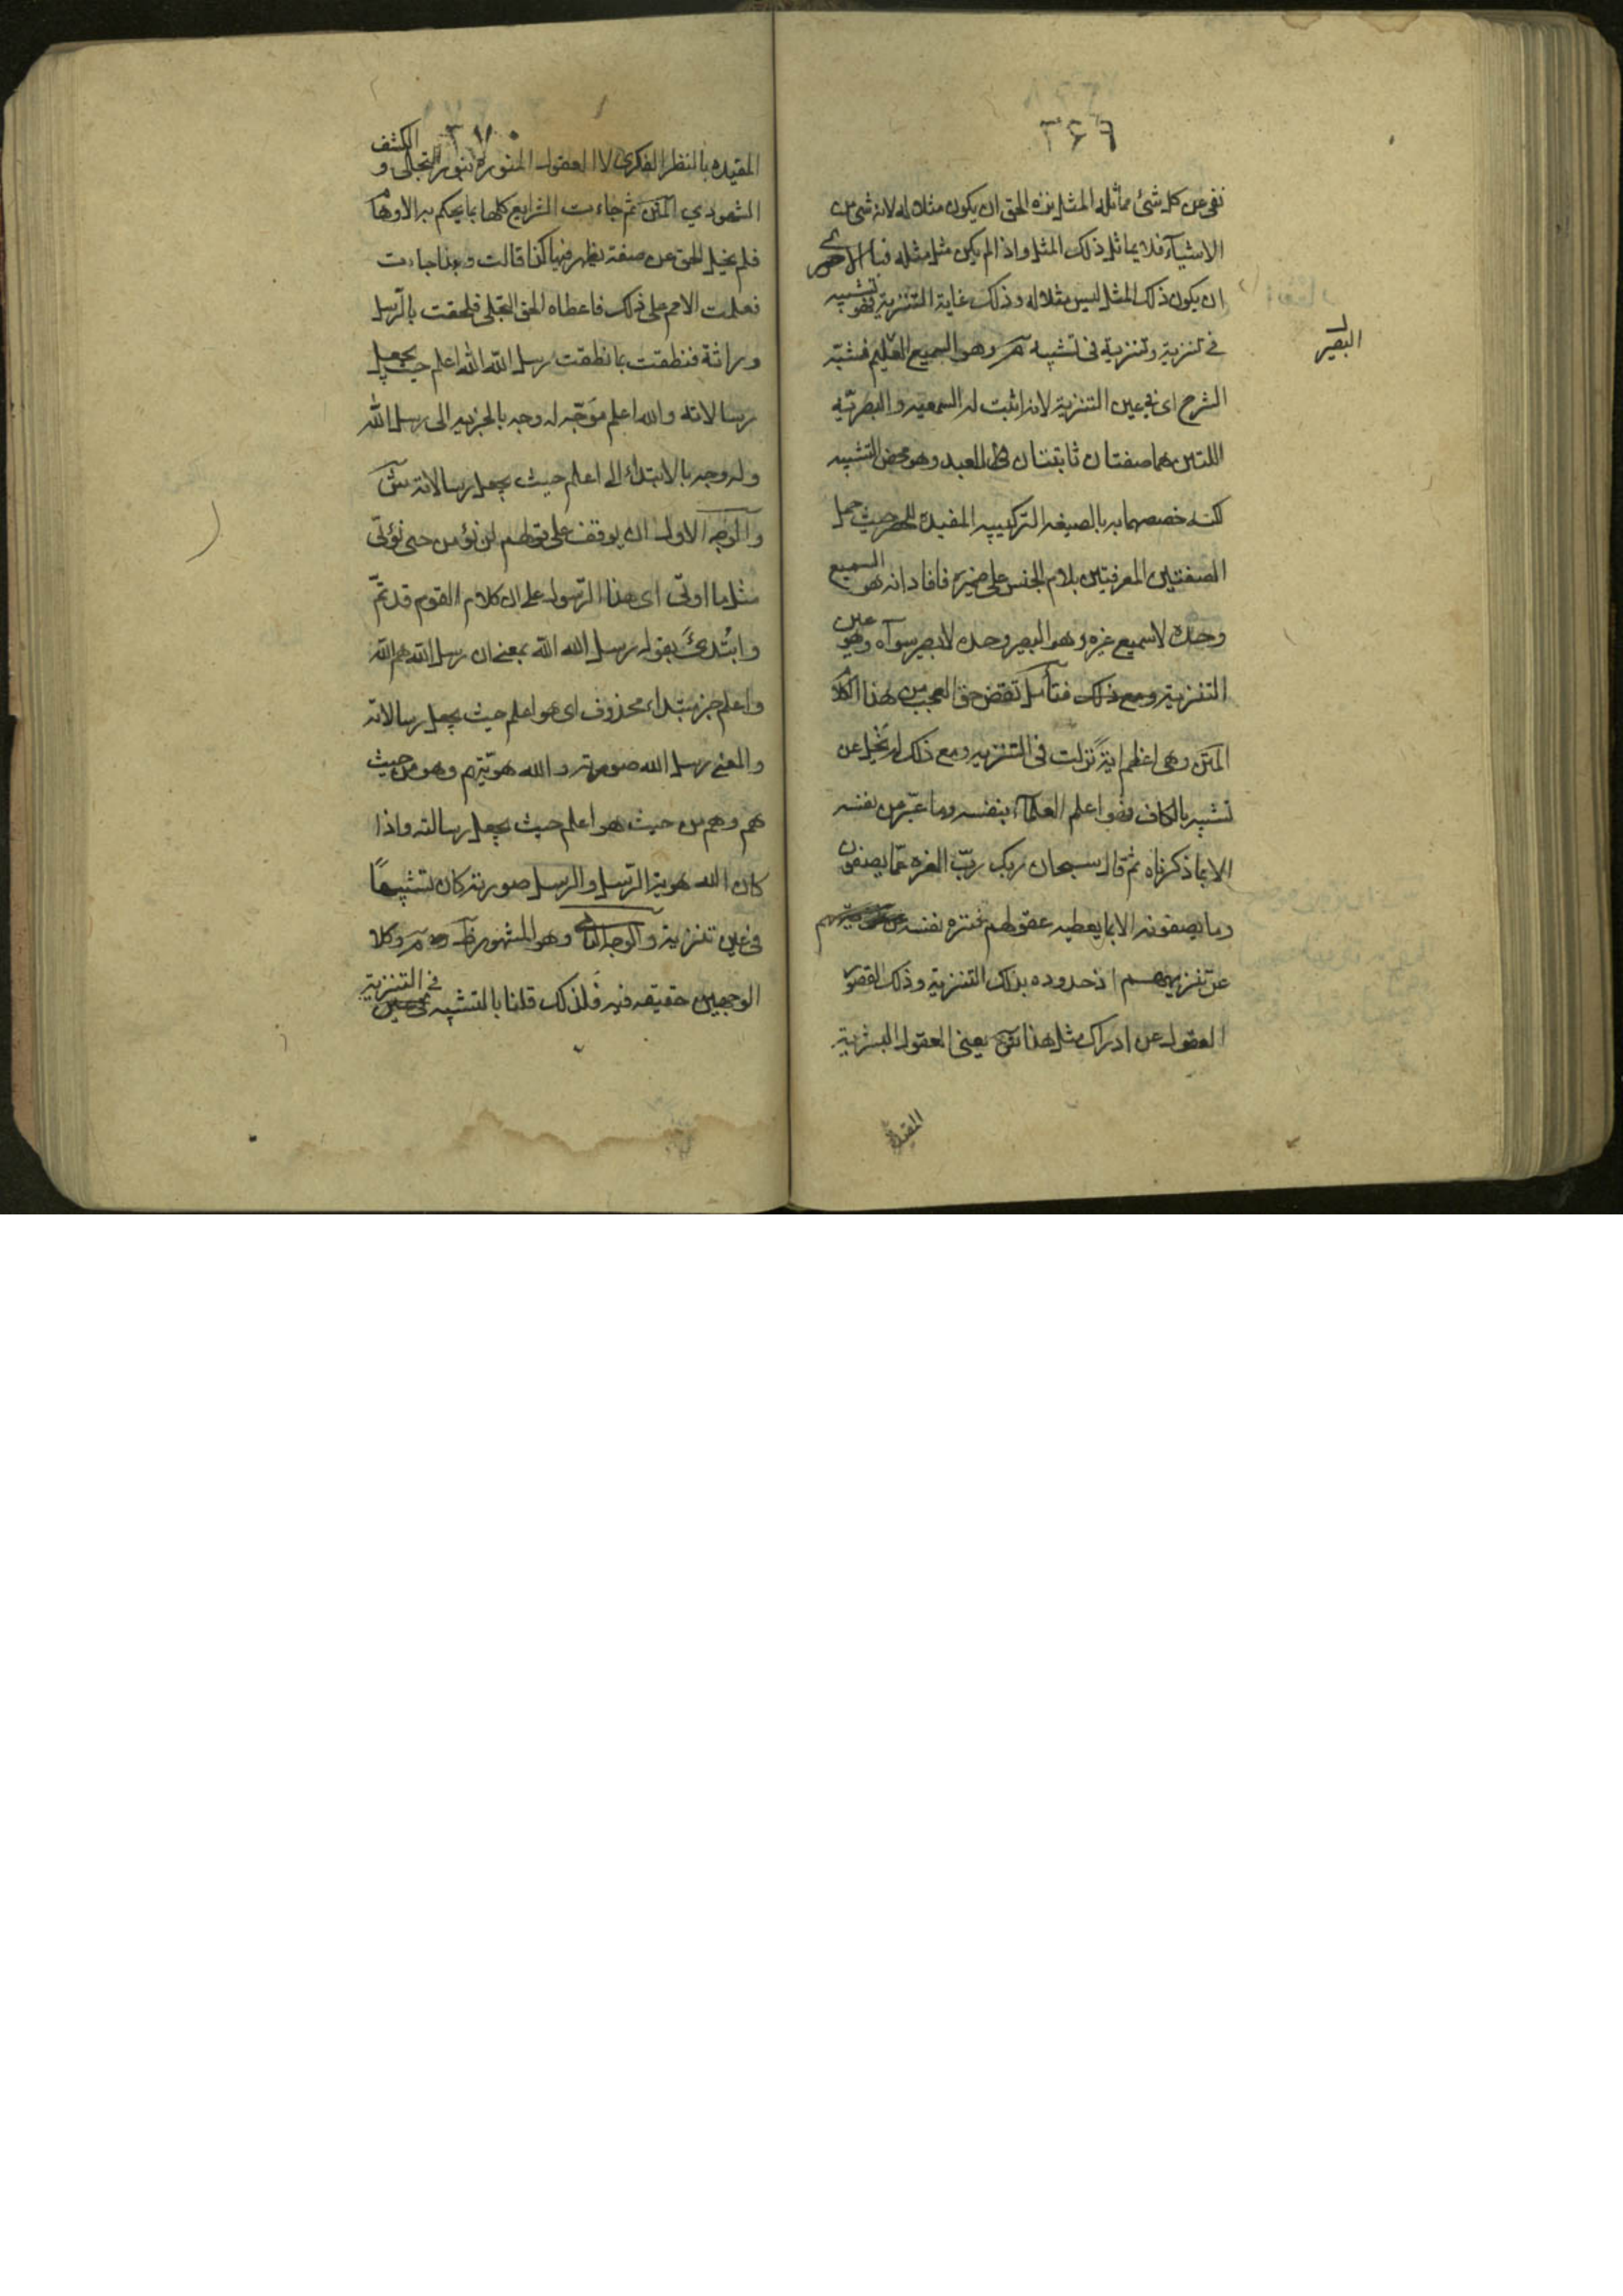 ٣۶٩
نفى عن كل شئ مماثلة المثل نزه الحق ان يكون مثلا له لانه شئ من
الاشيآء فلا يماثل ذلك المثل واذا لم يكن مثل مثله فبالاحرى
ان يكون ذلك المثل ليس مثلا له وذلك غاية التنزيه فهو تشبيه
في تنزيه وتنزيه في تشبيه وهو السميع العليم فشبه
البصير
الشرح اى في عين التنزيه لانه اثبت له السمعيه والبصريّه
اللتين هما صفتان ثابتتان للعبد وهو محض التشبيه
لكنه خصصهما به بالصيغه التركيبيه المفيدة للحصر حيث حمل
الصفتين المعرفيتين بلام الجنس على ضميره فافاد انه هو السميع
وحده لا سميع غيره وهو البصير وحده لا بصير سوآه وهو عين
التنزيه ومع ذلك فتأمل تقض حق العجب من هذا الكلام
المتن وهى اعظم اية نزلت في التنزيه ومع ذلك لم تخل عن
تشبيه بالكاف فهو اعلم العلمآء بنفسه وما عبّر عن نفسه
الا بما ذكرناه ثم قال سبحان ربك ربّ العزه عمّا يصفون
وما يصفونه الا بما يعطيه عقولهم فنزه نفسه
عن تنزيههم اذ حدوده بذلك التنزيه وذلك لقصور
العقول عن ادراك مثل هذا ش يعنى العقول البشرية
المقيدة
٣٧٠
المقيده بالنظر الفكرى لا العقول المنورة بنور التجلى و الكشف
الشهودي المتن ثم جاءت الشرايع كلها بما يحكم به الاوهام
فلم يخل الحق عن صفة يظهر فيها كذا قالت وبذا جاءت
فعلمت الامم على ذلك فاعطاه الحق التجلى فلحقت بالرّسل
وراثة فنطقت بما نطقت رسل الله الله اعلم حيث يجعل
رسالاته والله اعلم موجّه له وجه بالخبريه الى رسل الله
وله وجه بالابتداء الى اعلم حيث يجعل رسالاته ش
والوجه الاول ان يوقف على قولهم لن نؤمن حتى نؤتى
مثل ما اوتى اى هذا الرّسول على ان كلام القوم قد تمّ
وابتُدئ بقوله رسل الله الله بمعنى ان رسل الله هم الله
واعلم خبر مبتداء محذوف اى هو اعلم حيث يجعل رسالاته
والمعنى رسل الله صورته والله هويّتهم وهو من حيث
هم وهم من حيث هو اعلم حيث يجعل رسالته واذا
كان الله هوية الرّسل والرسل صورته كان تشبيهًا
في عين تنزيه والوجه الثاني وهو المشهور ظ وكلا
الوجهين حقيقه فيه فلذلك قلنا بالتشبيه في التنزيه